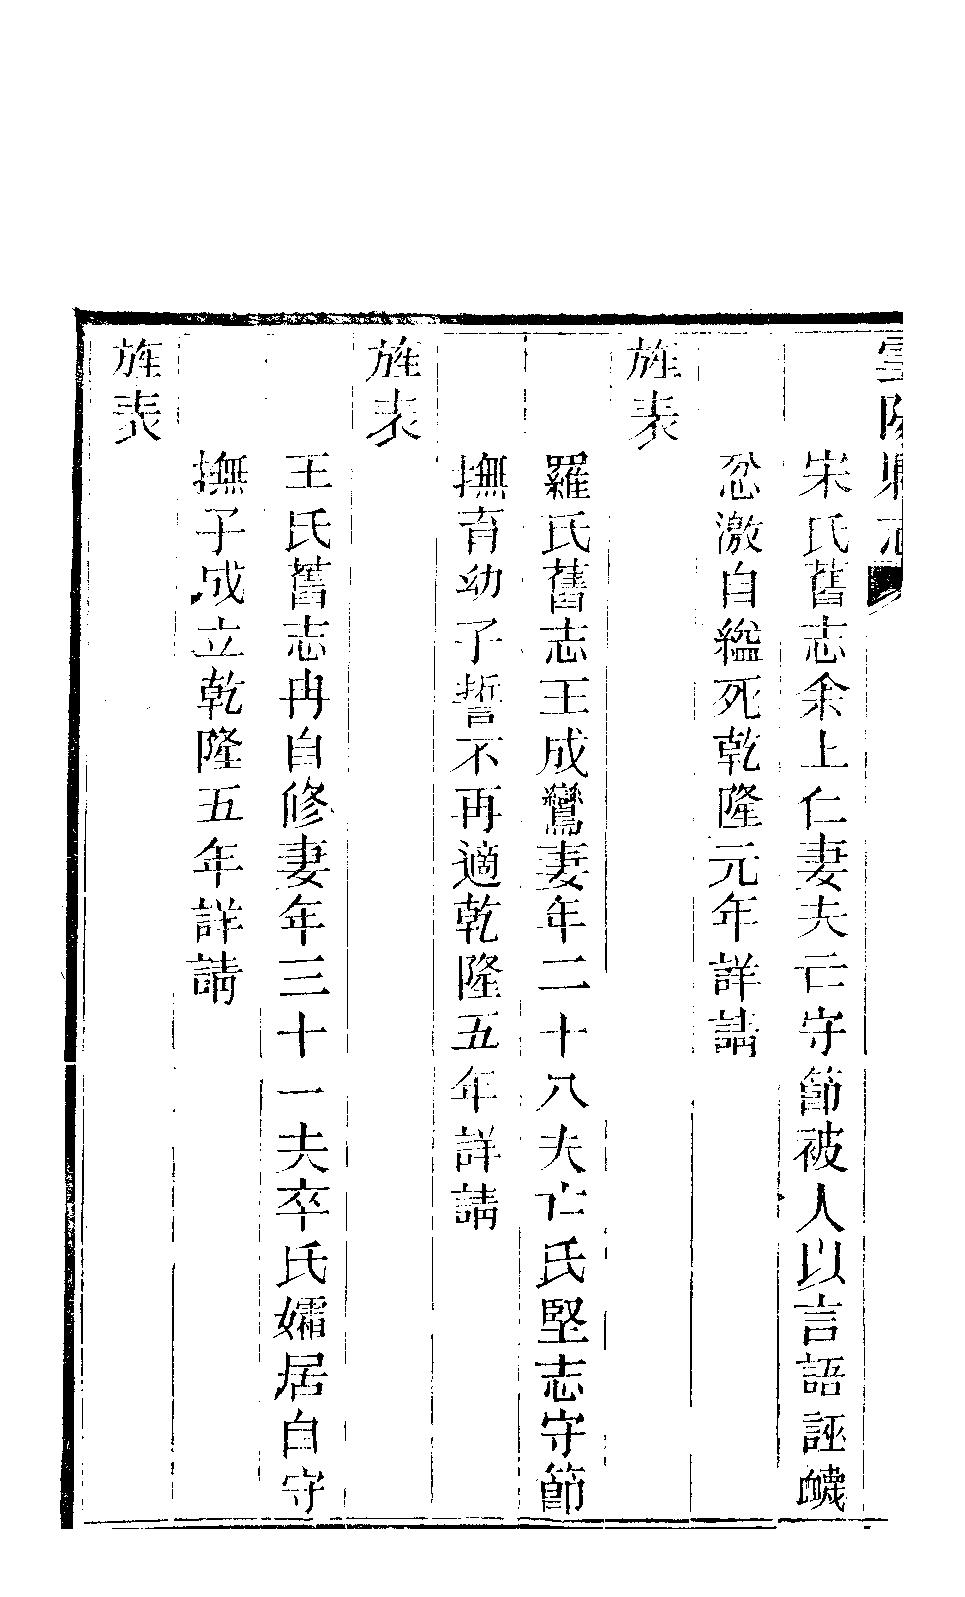 雲陽縣志
宋氏舊志余上仁妻夫亡守節被人以言語誣衊
忿激自縊死乾隆元年詳請
旌表
羅氏舊志王成鸞妻年二十八夫亡氏堅志守節
撫育幼子誓不再適乾隆五年詳請
旌表
王氏舊志冉自修妻年三十一夫卒氏孀居自守
撫子成立乾隆五年詳請
旌表